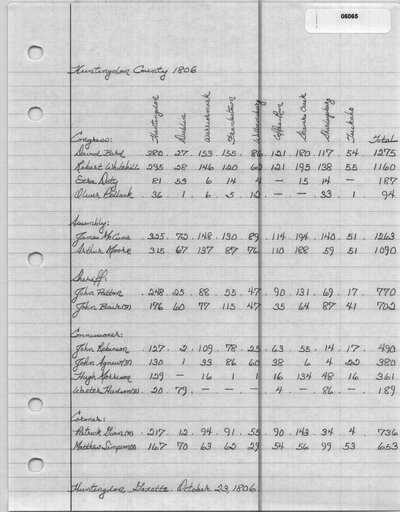 06065
Huntingdon County 1806
Huntingdon Dublin Warriorsmark Frankston Williamsburg Coffee Run Shavers Creek Shirleysburg
Congress: Total
David Bard 380 27 153 155 86 121 180 117 54 1275
Robert Whitehill 295 28 146 120 62 121 195 138 55 1160
Ezra Doty 81 53 6 14 4 — 15 14 — 187
Oliver Pollock 36 1 6 5 12 — — 33 1 94
Assembly:
James McCune 325 72 148 130 89 114 194 140 51 1263
Arthur Moore 315 67 137 87 76 110 188 59 51 1090
Sheriff:
John Patton 248 25 88 55 47 90 131 69 17 770
John Blair 176 60 77 115 47 35 64 87 41 702
Commissioner:
John Robinson 127 2 109 78 25 63 55 14 17 490
John Agnew 130 1 33 86 60 38 6 4 22 380
Hugh Morrison 129 — 16 1 1 16 134 48 16 361
Walter Hudson 20 79 — — — 4 — 86 — 189
Coroner:
Patrick Gwin 217 12 94 91 55 90 143 34 4 736
Matthew Simpson 167 70 63 62 29 54 56 99 53 653
Huntingdon Gazette. October 23, 1806.